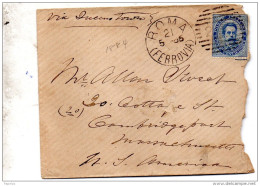 via Queenstown
ROMA
21
5
85
(FERROVIA)
1884
Mr Allen Street
(%) Co. Cottage St
Cambridgeport
Massachusetts
U. S. America